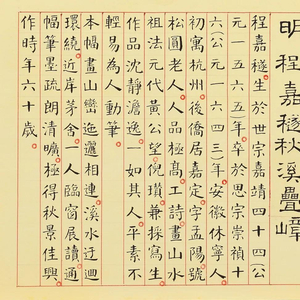 明程嘉燧秋溪疊嶂
程嘉燧生於世宗嘉靖四十四(公
元一五六五)年。卒於思宗崇禎十
六(公元一六四三)年。安徽休寧人。
初寓杭州。後僑居嘉定。字孟陽。號
松圓老人。人品極高。工詩畫。山水
祖法元代黃公望。倪瓚。兼採寫生。
作品沈靜澹逸。一如其人。平素不
輕易為人動筆。
本幅畫山巒迤邐相連。溪水迂迴
環繞。近岸茅舍。一人臨窗展讀。通
幅筆墨疏朗清曠。極得秋景佳興。
作時年六十歲。